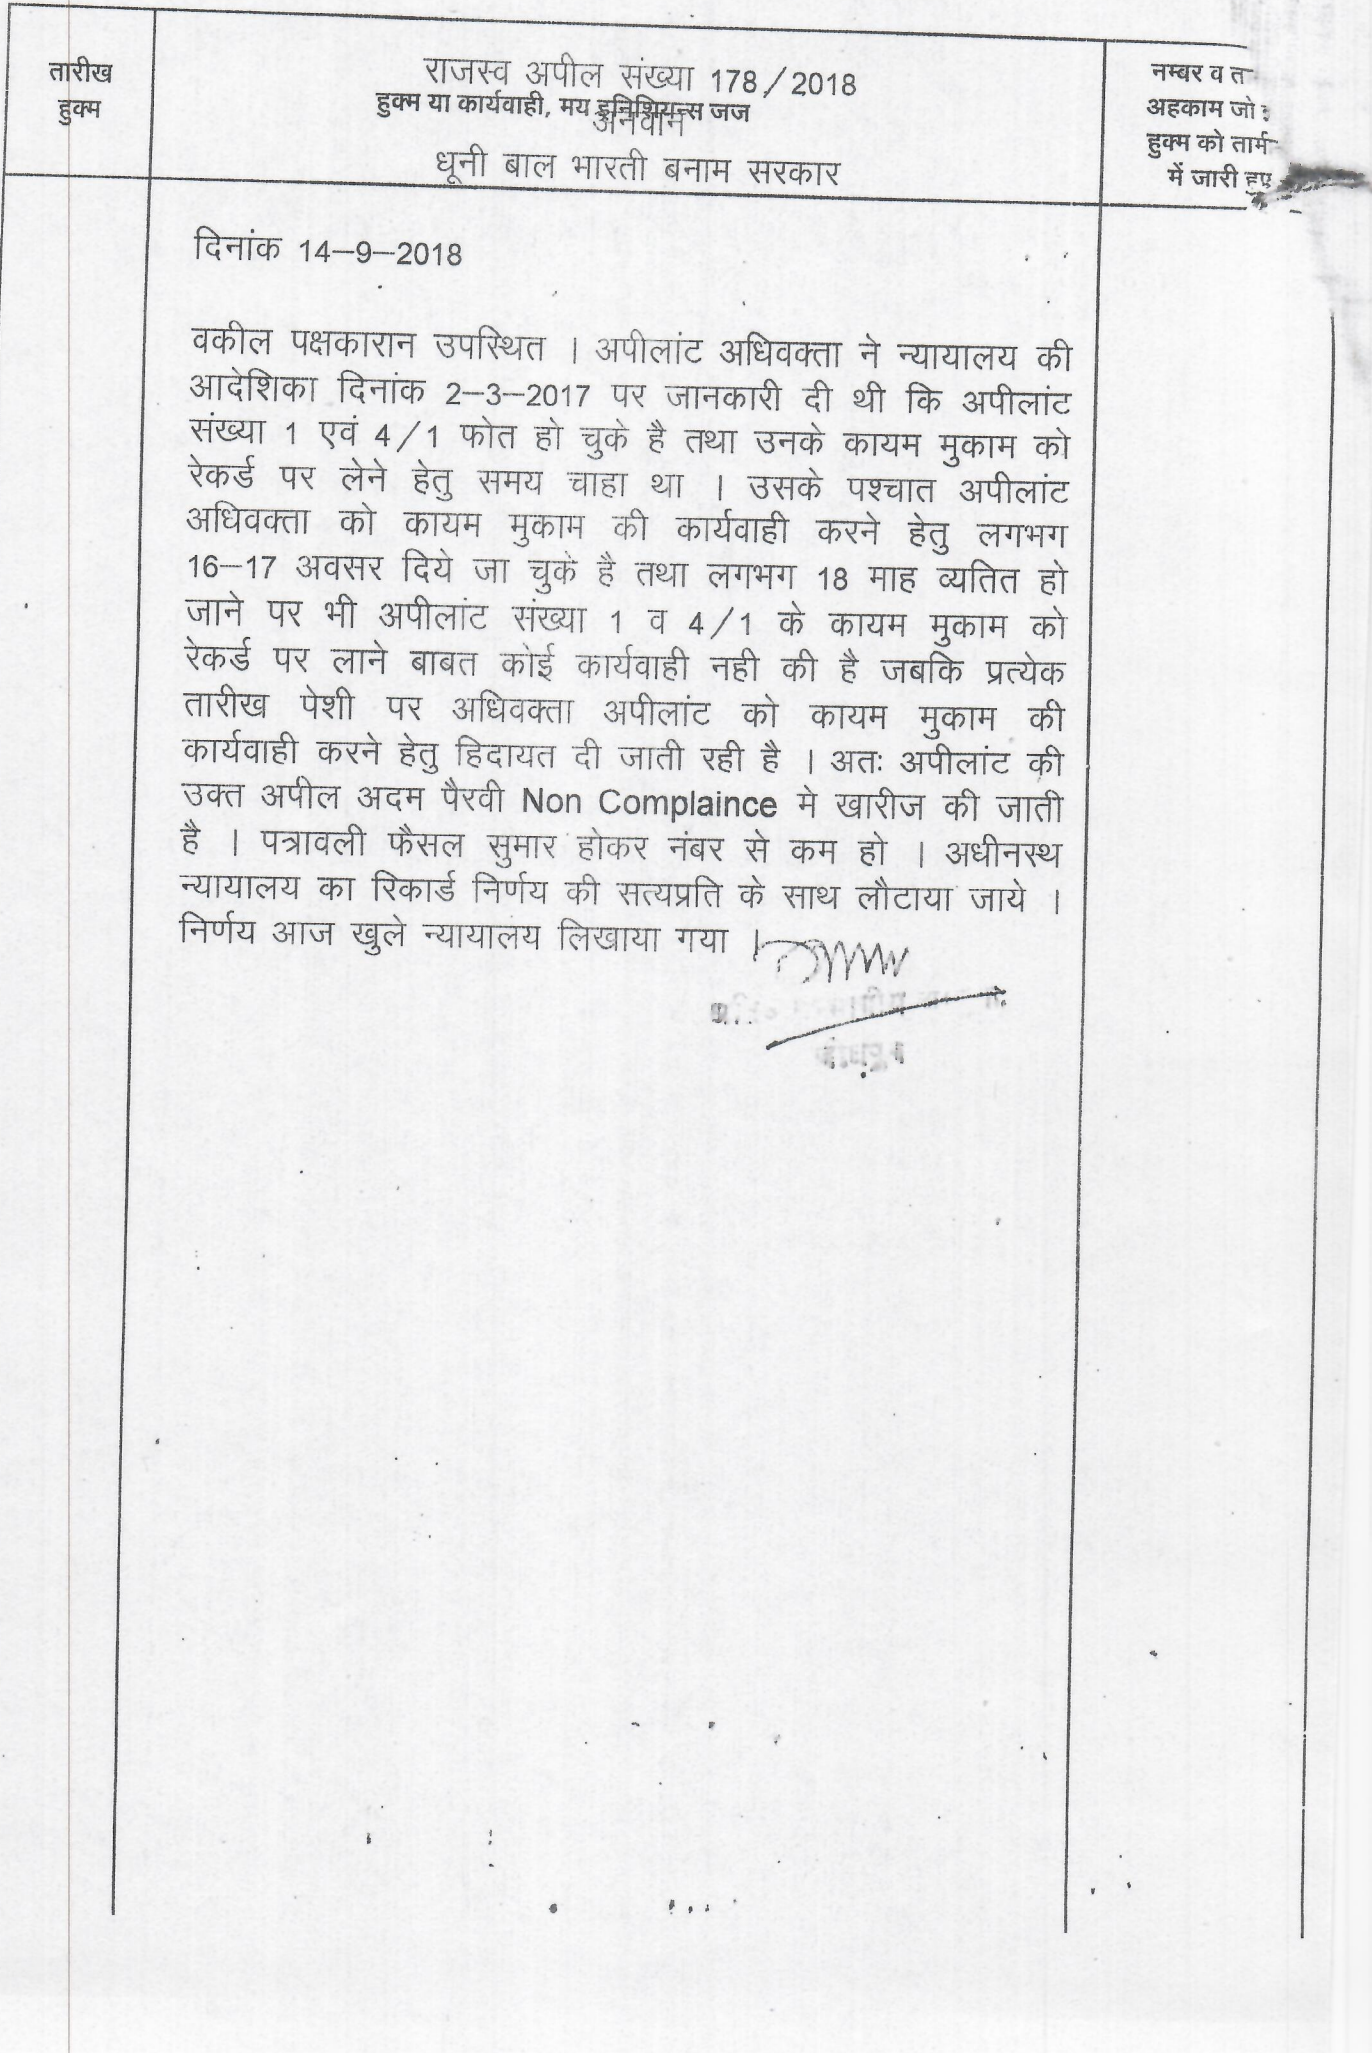 तारीख
हुक्म
राजस्व अपील संख्या 178/2018
हुक्म या कार्यवाही, मय इनिशियन्स जज
अनवान
धूनी बाल भारती बनाम सरकार
नम्बर व
अहकाम जो
हुक्म को
में जारी हुए
दिनांक 14–9–2018
वकील पक्षकारान उपस्थित । अपीलांट अधिवक्ता ने न्यायालय की
आदेशिका दिनांक 2–3–2017 पर जानकारी दी थी कि अपीलांट
संख्या 1 एवं 4/1 फोत हो चुके है तथा उनके कायम मुकाम को
रेकर्ड पर लेने हेतु समय चाहा था । उसके पश्चात अपीलांट
अधिवक्ता को कायम मुकाम की कार्यवाही करने हेतु लगभग
16–17 अवसर दिये जा चुके है तथा लगभग 18 माह व्यतित हो
जाने पर भी अपीलांट संख्या 1 व 4/1 के कायम मुकाम को
रेकर्ड पर लाने बाबत कोई कार्यवाही नही की है जबकि प्रत्येक
तारीख पेशी पर अधिवक्ता अपीलांट को कायम मुकाम की
कार्यवाही करने हेतु हिदायत दी जाती रही है । अतः अपीलांट की
उक्त अपील अदम पैरवी Non Complaince मे खारीज की जाती
है । पत्रावली फैसल सुमार होकर नंबर से कम हो । अधीनस्थ
न्यायालय का रिकार्ड निर्णय की सत्यप्रति के साथ लौटाया जाये ।
निर्णय आज खुले न्यायालय लिखाया गया ।